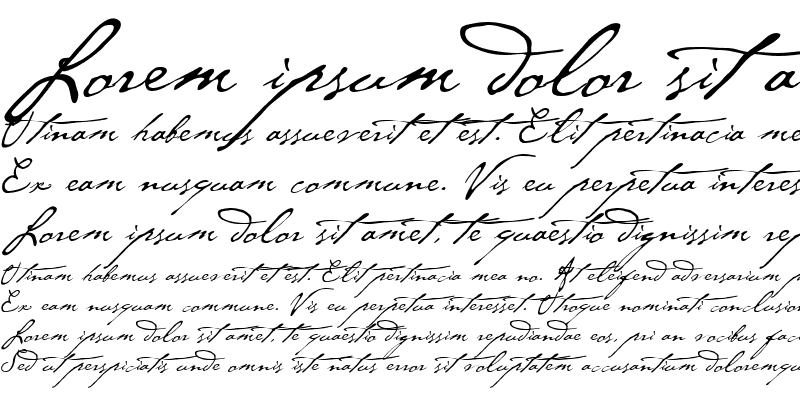 Lorem ipsum dolor sit a
Utinam habemus assueverit et est. Elit pertinacia me
Ex eam nusquam commune. Vis eu perpetua interes
Lorem ipsum dolor sit amet, te quaestio dignissim rep
Utinam habemus assueverit et est. Elit pertinacia mea no. At eleifend adversarium p
Ex eam nusquam commune. Vis eu perpetua interesset. Utroque nominati conclusion
Lorem ipsum dolor sit amet, te quaestio dignissim repudiandae eos, pri an vocibus fac
Sed ut perspiciatis unde omnis iste natus error sit voluptatem accusantium doloremqu